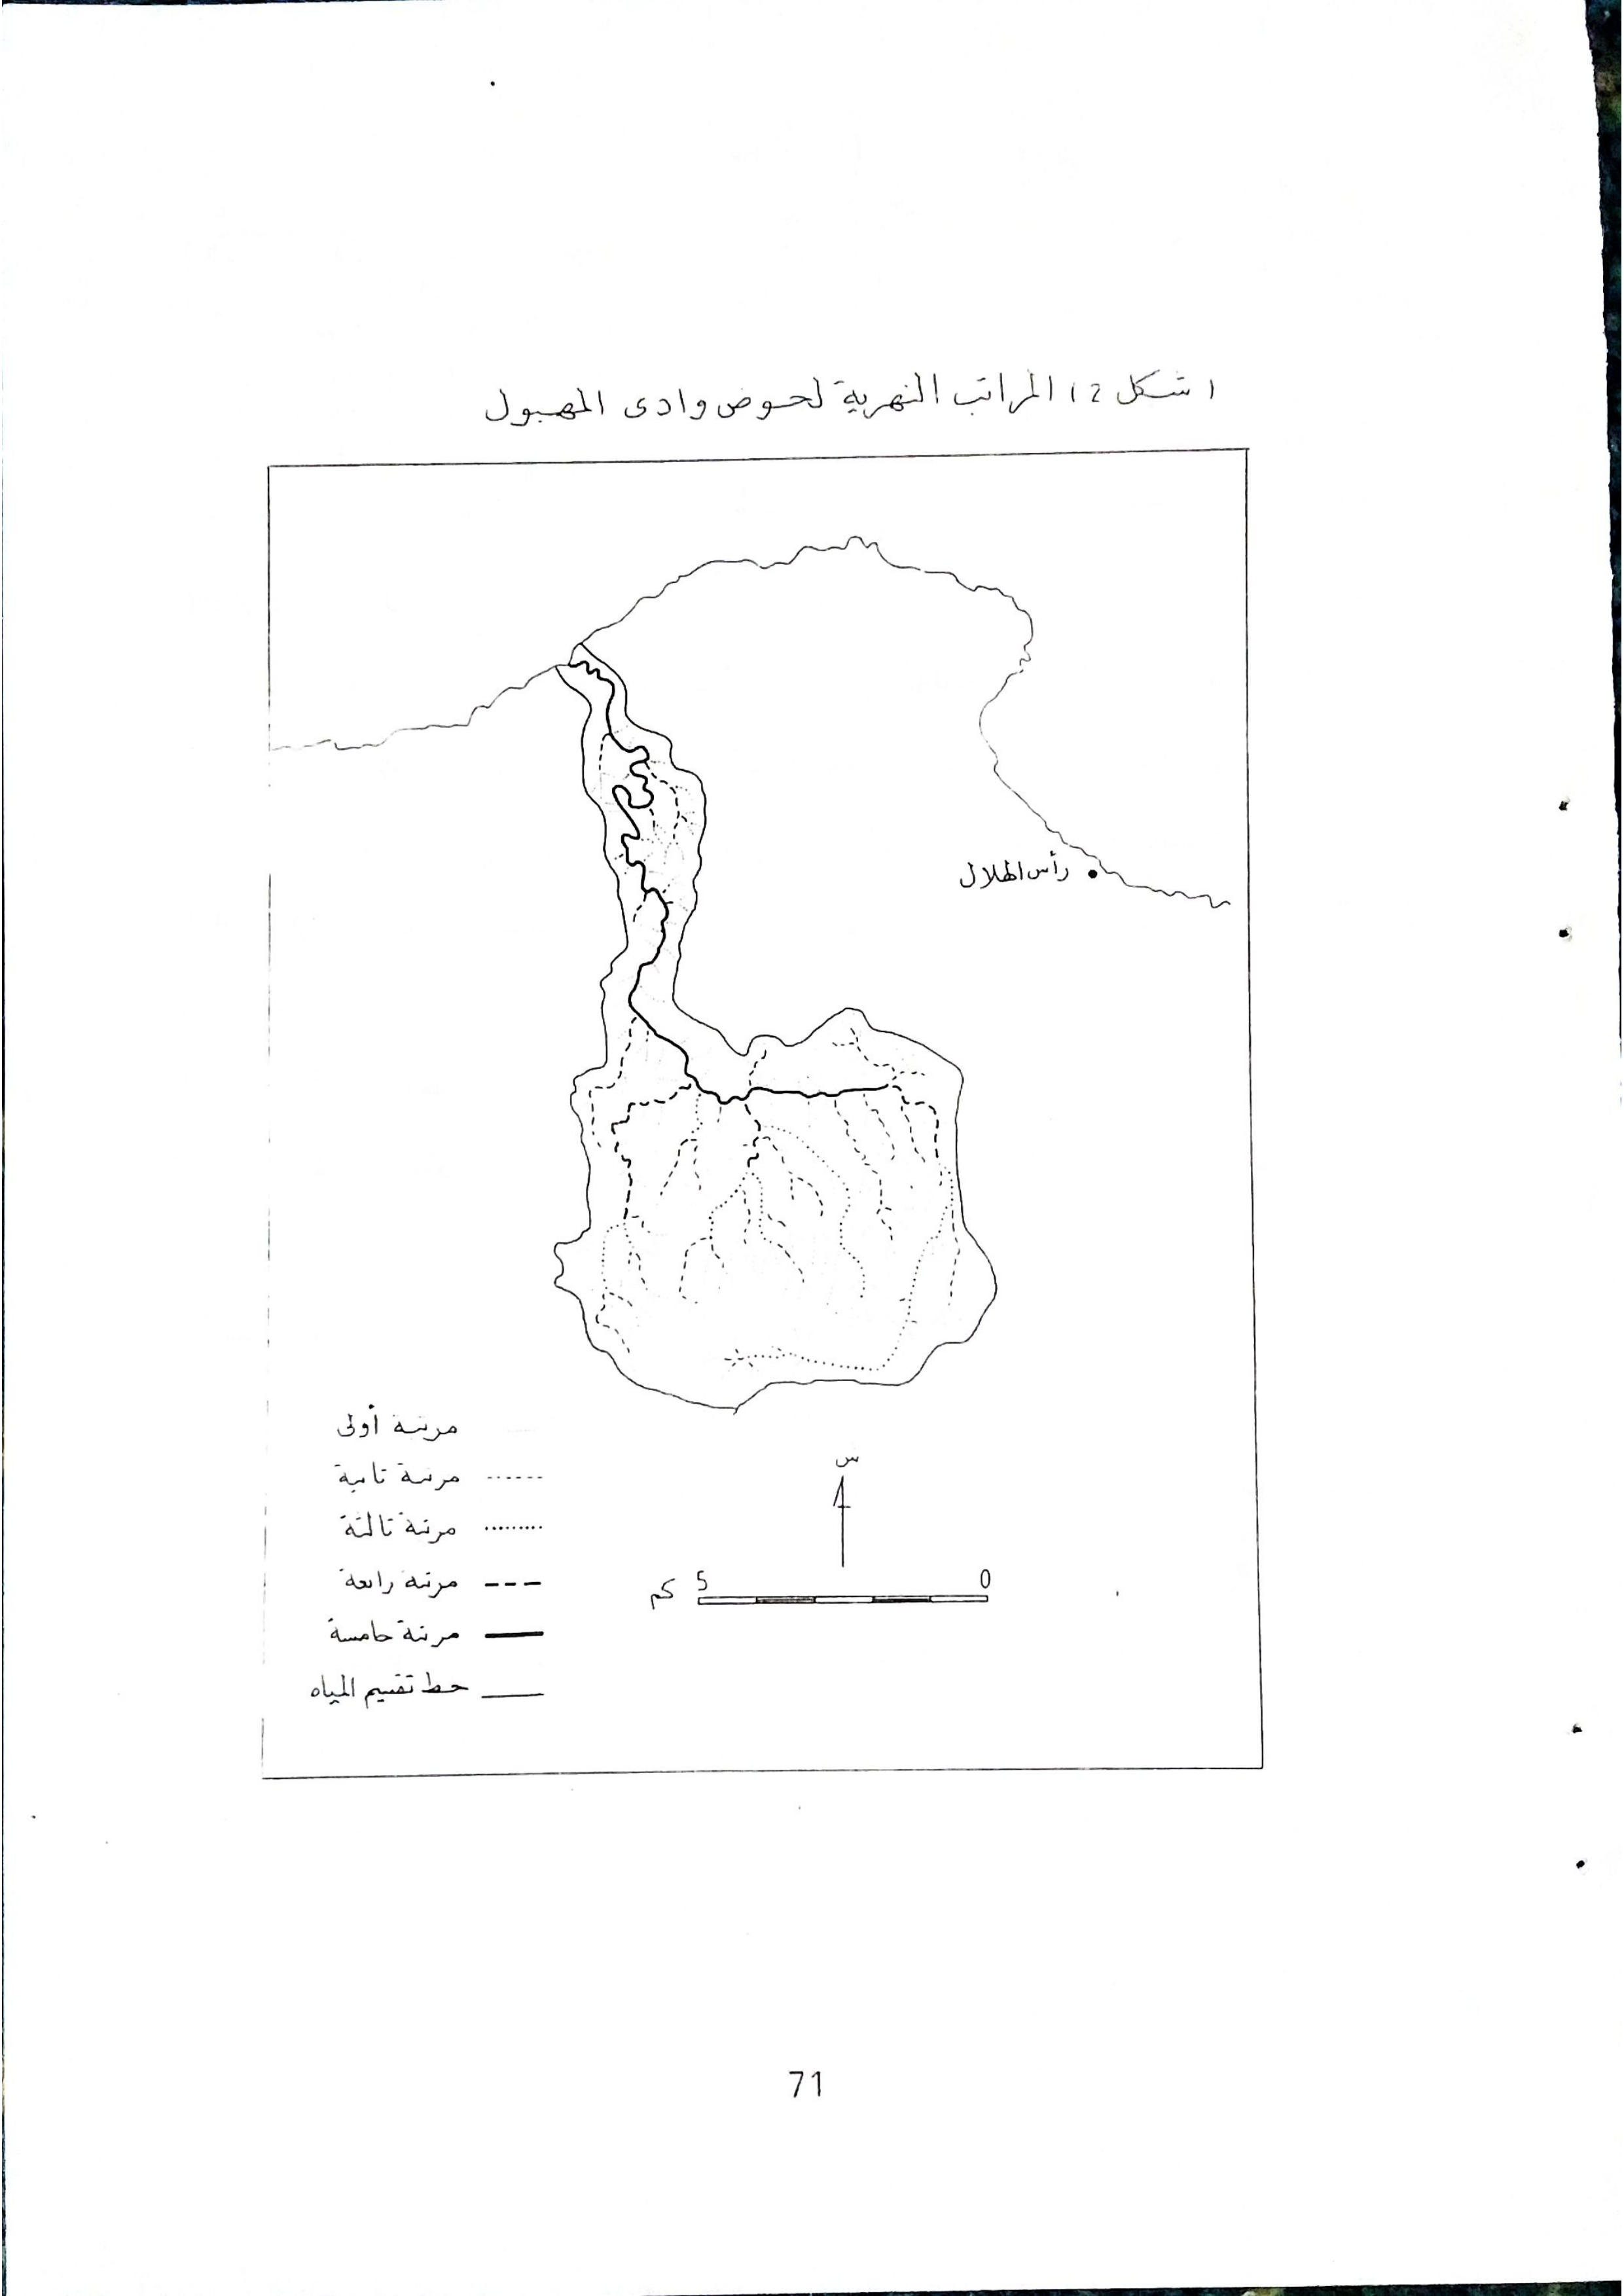 (شكل 2) المراتب النهرية لحوض وادى المهبول
رأس الهلال
مرتبة أولى
مرتبة ثانية
مرتبة ثالثة
مرتبة رابعة
مرتبة خامسة
خط تقسيم المياه
س
0
5 كم
71